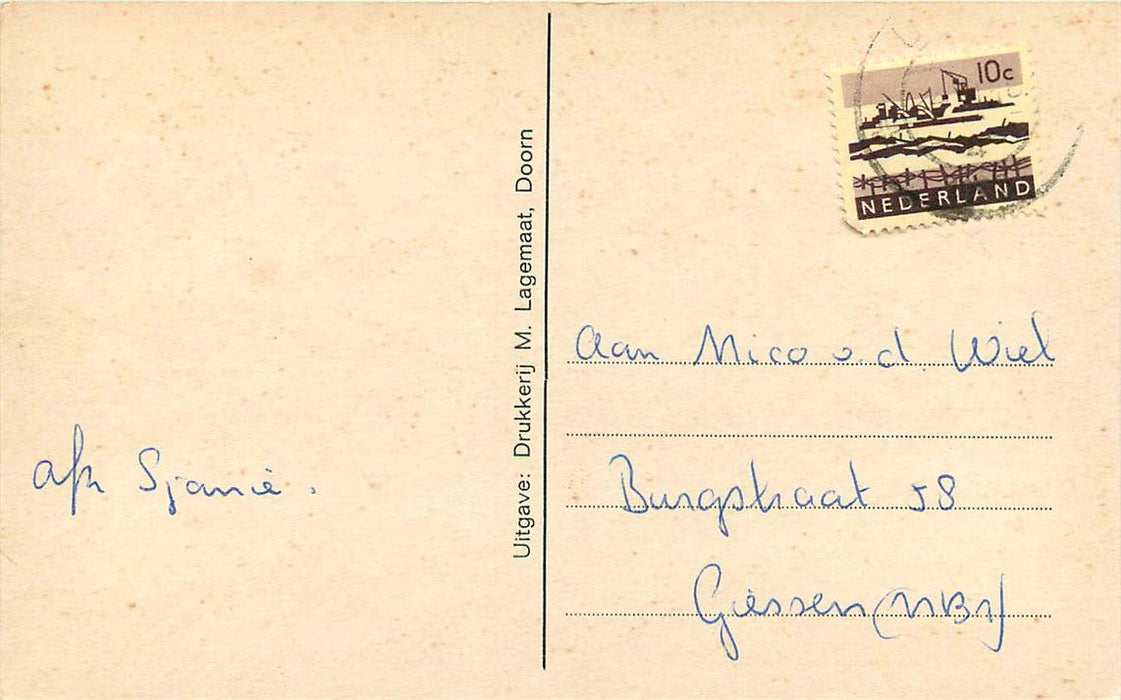 afz Sjanie.
Uitgave: Drukkerij M. Lagemaat, Doorn
10c
NEDERLAND
Aan Nico v.d. Wiel
Burgstraat 58
Giessen (NBr)